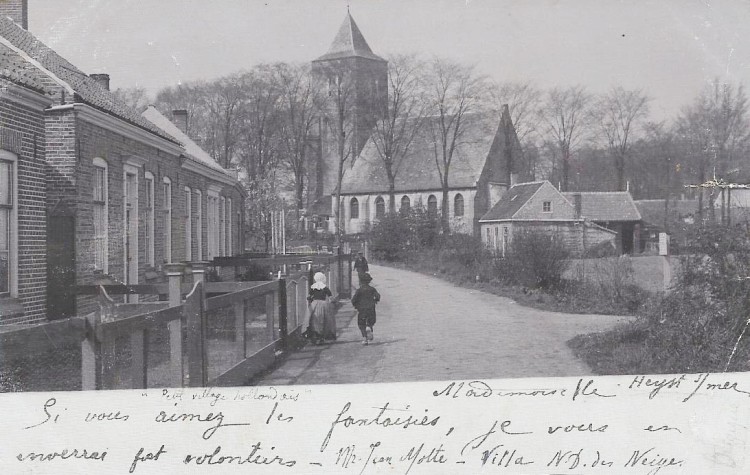 " Petit village hollandais "
Mademoiselle . Heyst s/mer
Si vous aimez les fantaisies, je vous en
enverrai fort volontiers – Mr Jean Motte – Villa N.D. des Neiges